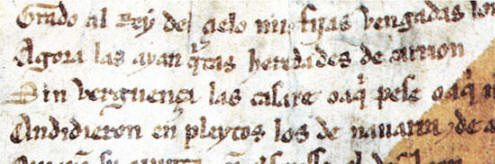 Grado al Rey del çielo mis fijas vengadas son
Agora las ayan q̃tas heredades de carrion
Sin verguença las casare o aq̃ pese o aq̃ n
Andidieron en pleytos los de nauarra ⁊ de a